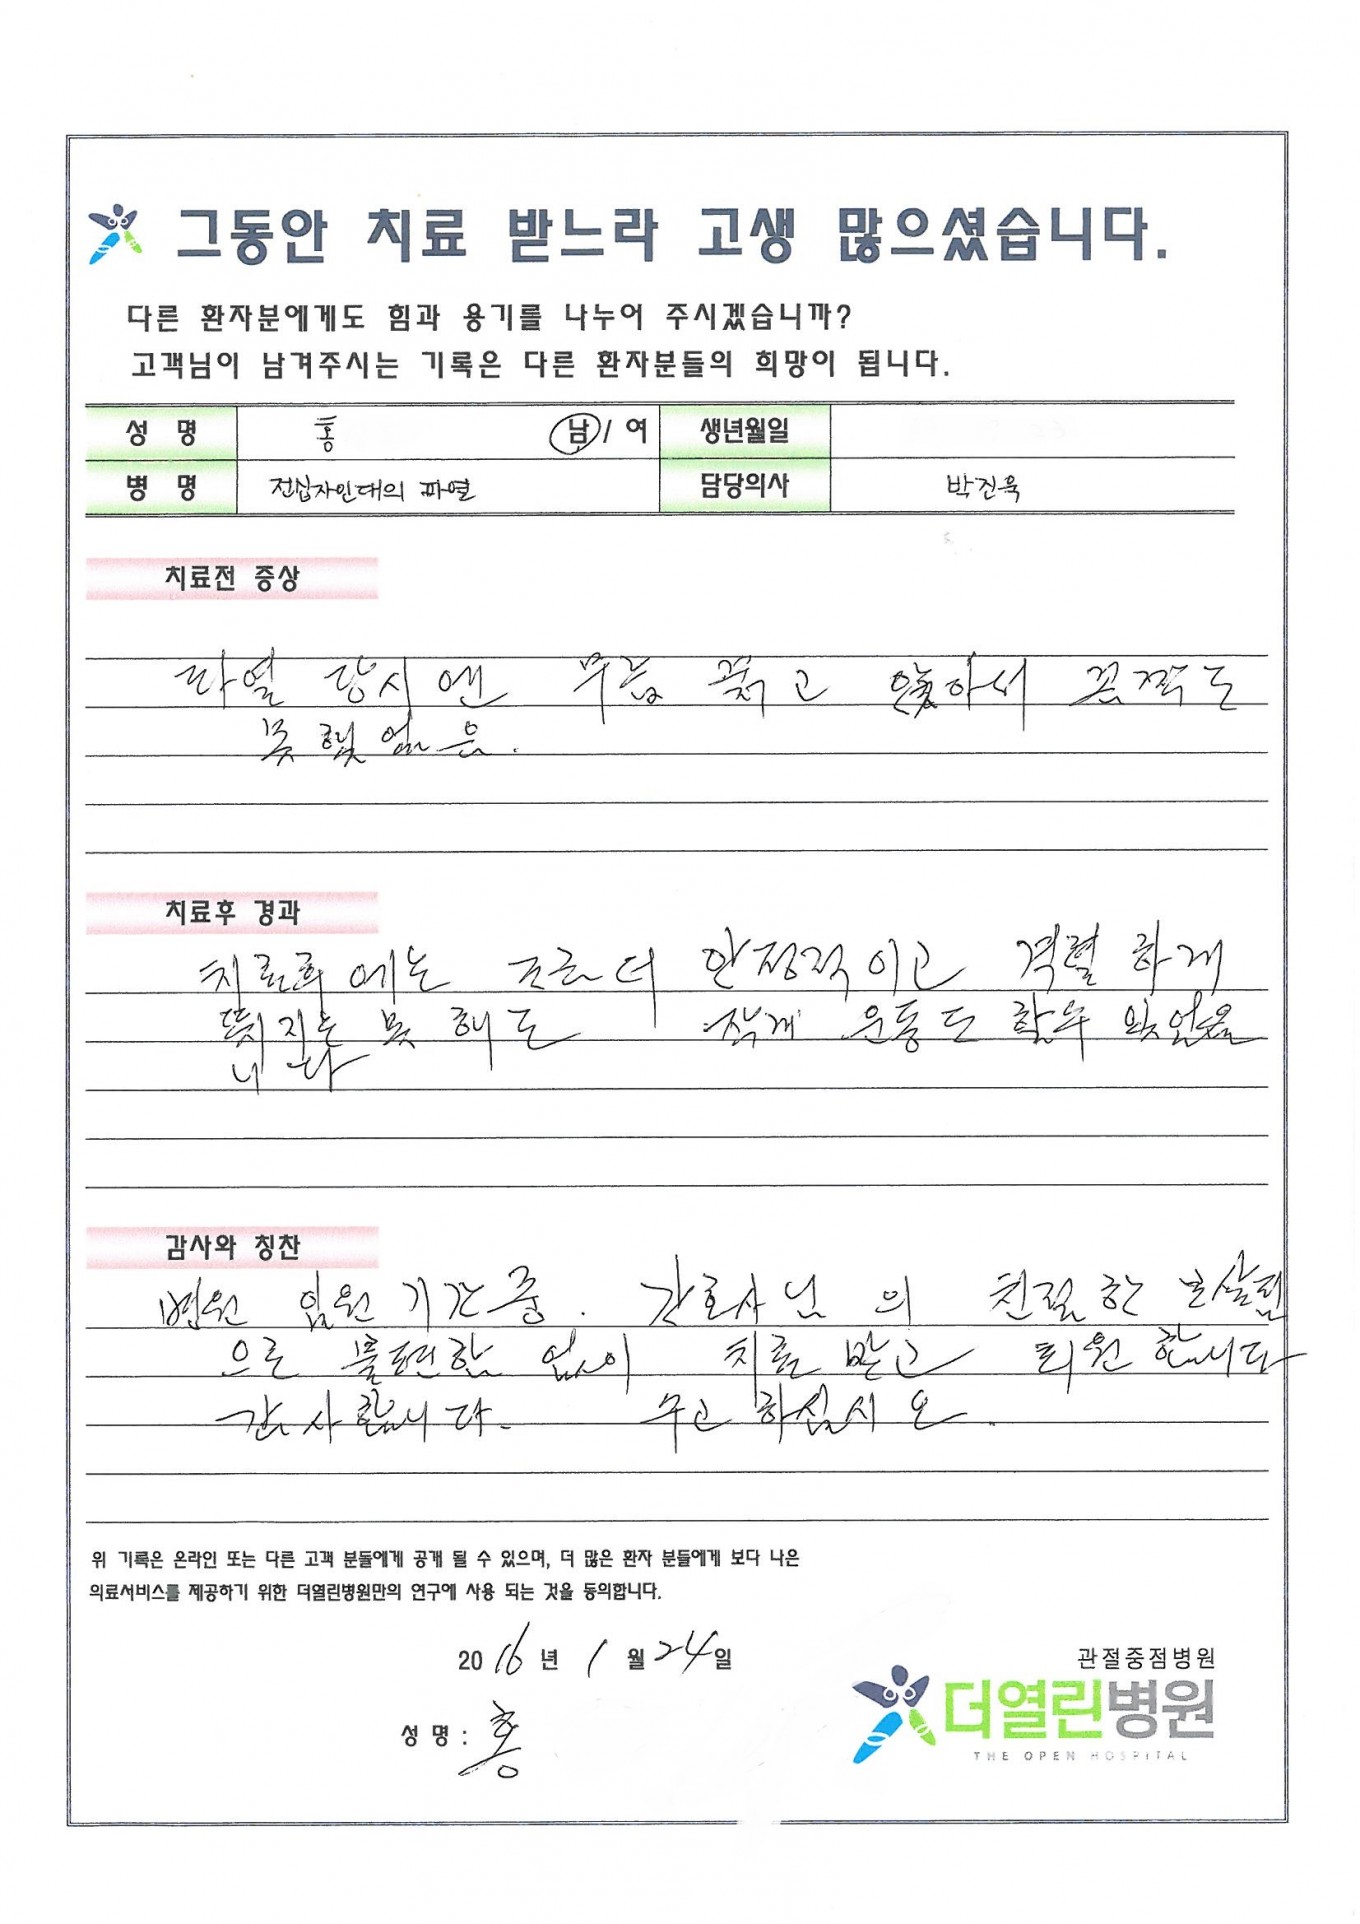 그동안 치료 받느라 고생 많으셨습니다.
다른 환자분에게도 힘과 용기를 나누어 주시겠습니까?
고객님이 남겨주시는 기록은 다른 환자분들의 희망이 됩니다.
성 명 홍 남/여 생년월일
병 명 전십자인대의 파열 담당의사 박진욱
치료전 증상
파열 당시엔 무릎 꿇고 앉아서 꼼짝도
못했었음.
치료후 경과
치료후에는 조금더 안정적이고 격렬하게
뛰지는 못해도 작게 운동도 할수 있었습
니다
감사와 칭찬
병원 입원기간중. 간호사님의 친절한 보살핌
으로 불편함 없이 치료받고 퇴원합니다
감사합니다. 수고하십시오.
위 기록은 온라인 또는 다른 고객 분들에게 공개 될 수 있으며, 더 많은 환자 분들에게 보다 나은
의료서비스를 제공하기 위한 더열린병원만의 연구에 사용 되는 것을 동의합니다.
2016년 1월 24일
성 명 : 홍
관절중점병원
더열린병원
THE OPEN HOSPITAL